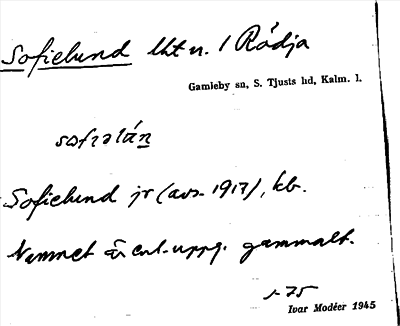 Sofielund lht u. 1 Rådja
Gamleby sn, S. Tjusts hd, Kalm. l.
sofıəlún
Sofielund jr (avs. 1917), kb.
Namnet är enl. uppg. gammalt.
1-75
Ivar Modéer 1945